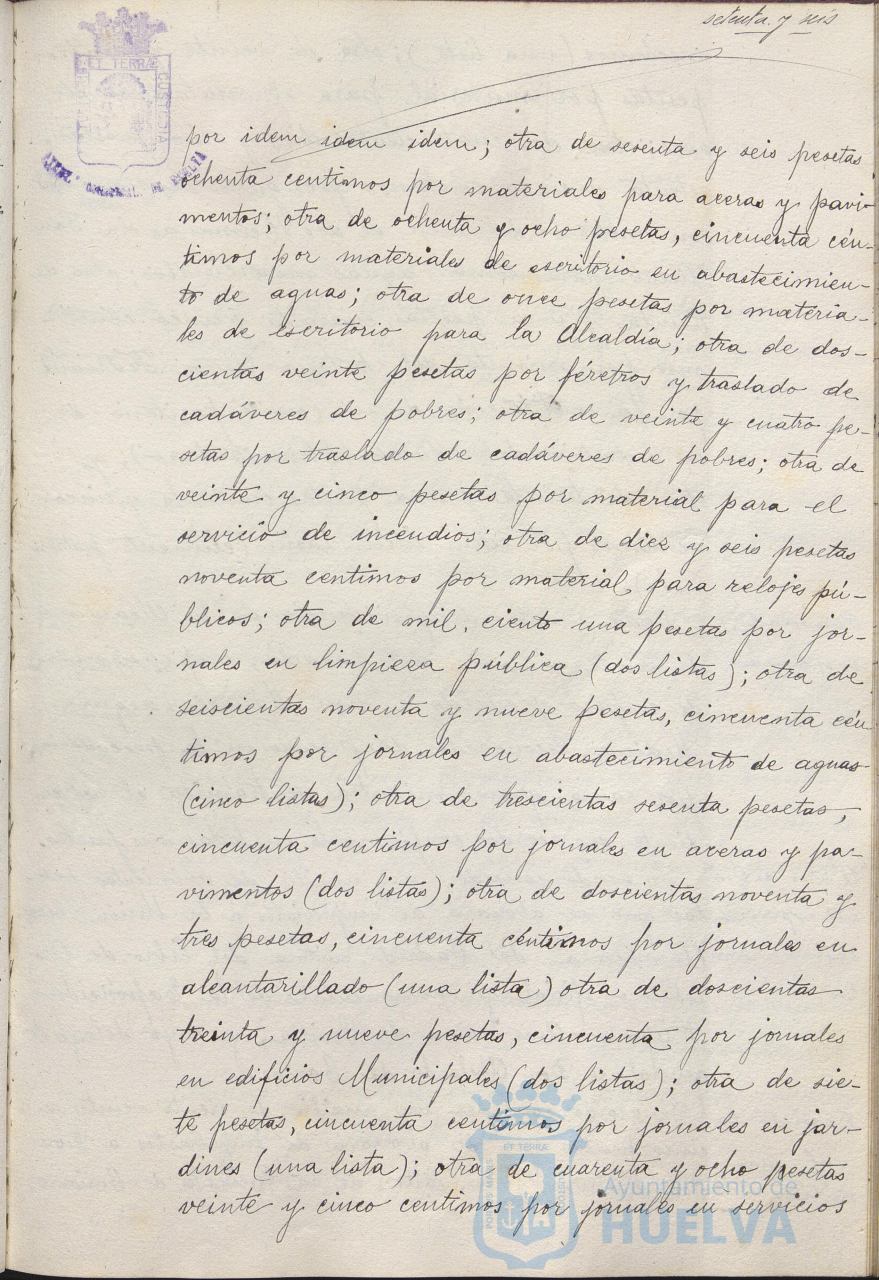 setenta y seis
ET TERRÆ
CUSTODIA
por idem idem idem; otra de sesenta y seis pesetas
ochenta centimos por materiales para aceras y pavi-
mentos; otra de ochenta y ocho pesetas, cincuenta cén-
timos por materiales de escritorio en abastecimien-
to de aguas; otra de once pesetas por materia-
les de escritorio para la Alcaldía; otra de dos-
cientas veinte pesetas por féretros y traslado de
cadáveres de pobres; otra de veinte y cuatro pe-
setas por traslado de cadáveres de pobres; otra de
veinte y cinco pesetas por material para el
servicio de incendios; otra de diez y seis pesetas
noventa centimos por material para relojes pú-
blicos; otra de mil, ciento una pesetas por jor-
nales en limpieza pública (dos listas); otra de
seiscientas noventa y nueve pesetas, cincuenta cén
timos por jornales en abastecimiento de aguas
(cinco listas); otra de trescientas sesenta pesetas,
cincuenta centimos por jornales en aceras y pa-
vimentos (dos listas); otra de doscientas noventa y
tres pesetas, cincuenta céntimos por jornales en
alcantarillado (una lista) otra de doscientas
treinta y nueve pesetas, cincuenta por jornales
en edificios Municipales (dos listas); otra de sie-
te pesetas, cincuenta centimos por jornales en jar-
dines (una lista); otra de cuarenta y ocho pesetas
veinte y cinco centimos por jornales en servicios
ET TERRÆ
Ayuntamiento de
HUELVA